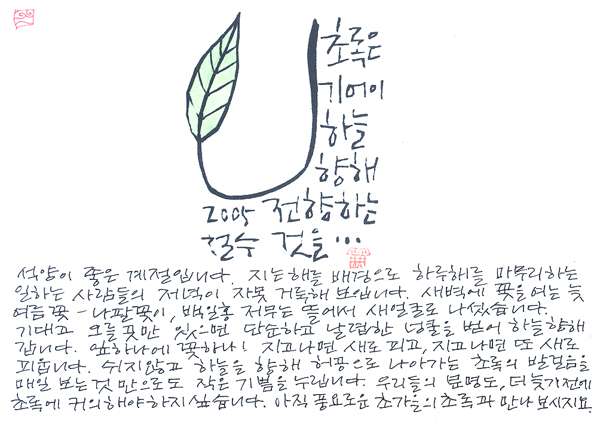 초록은
기어이
하늘
향해
2005 전향하는
철수 것을...
석양이 좋은 계절입니다. 지는해를 배경으로 하루해를 마무리하는
일하는 사람들의 저녁이 자못 거룩해 보입니다. 새벽에 꽃을 여는 늦
여름꽃 - 나팔꽃이, 백일홍 저무는 뜰에서 새얼굴로 나섰습니다.
기대고 오를 곳만 있으면 단순하고 날렵한 넝쿨을 벋어 하늘향해
갑니다. 잎하나에 꽃하나! 지고나면 새로 피고, 지고나면 또 새로
피웁니다. 쉬지않고 하늘을 향해 허공으로 나아가는 초록의 발걸음을
매일 보는것 만으로도 작은 기쁨을 누립니다. 우리들의 문명도, 더 늦기전에
초록에 귀의해야하지 싶습니다. 아직 풍요로운 초가을의 초록과 만나 보시지요.